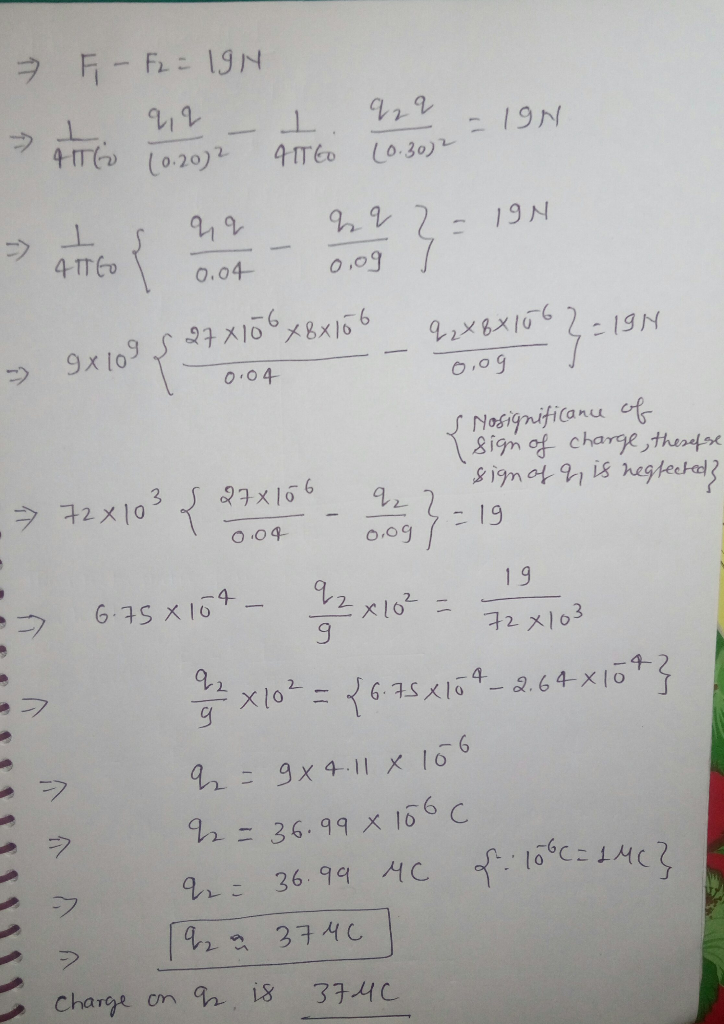 ⇒ F₁ - F₂ = 19N
⇒ 1/4π€0 · q₁q/(0.20)² - 1/4π€0 · q₂q/(0.30)² = 19N
⇒ 1/4π€0 { q₁q/0.04 - q₂q/0.09 } = 19N
⇒ 9×10⁹ { 27×10⁻⁶×8×10⁻⁶/0.04 - q₂×8×10⁻⁶/0.09 } = 19N
{ No significance of
sign of charge, therefore
sign of q₁ is neglected }
⇒ 72×10³ { 27×10⁻⁶/0.04 - q₂/0.09 } = 19
⇒ 6.75×10⁻⁴ - q₂/9 ×10² = 19/72×10³
⇒ q₂/9 ×10² = {6.75×10⁻⁴ - 2.64×10⁻⁴}
⇒ q₂ = 9×4.11×10⁻⁶
⇒ q₂ = 36.99×10⁻⁶ C
⇒ q₂ = 36.99 μC {∵ 10⁻⁶C = 1μC}
⇒ q₂ ≈ 37μC
charge on q₂ is 37μC